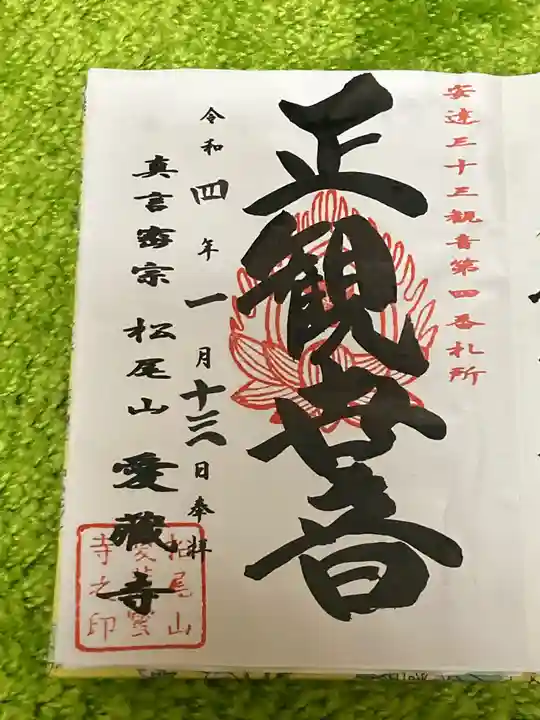 安達三十三観音第四番札所
正観世音
令和四年一月十三日奉拝
真言密宗 松尾山 愛蔵寺
松尾山
愛蔵密
寺之印